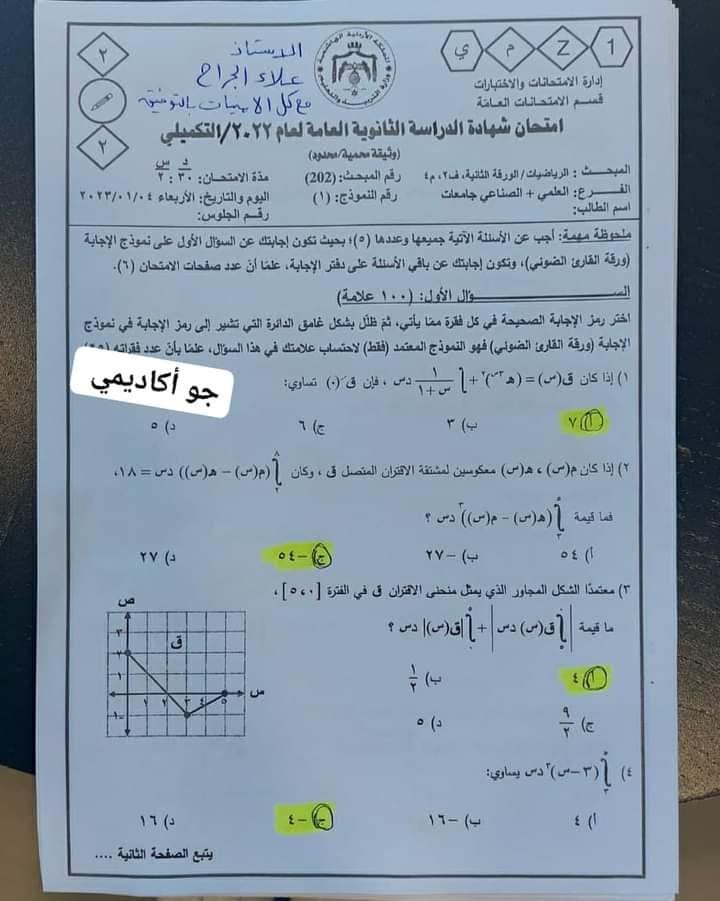 1 Z م ي
إدارة الامتحانات والاختبارات
قسم الامتحانات العامة
الاستاذ
علاء الجراح
مع كل الامنيات بالتوفيق
٢
٢
امتحان شهادة الدراسة الثانوية العامة لعام ٢٠٢٢/التكميلي
(وثيقة محمية/محدود)
المبحـــث : الرياضيات / الورقة الثانية، ف٢، م٤
رقم المبحث: (202)
مدة الامتحان: ٣٠ : ٢
د س
الفــــرع: العلمي + الصناعي جامعات
رقم النموذج: (١)
اليوم والتاريخ: الأربعاء ٢٠٢٣/٠١/٠٤
اسم الطالب:
رقم الجلوس:
ملحوظة مهمة: أجب عن الأسئلة الآتية جميعها وعددها (٥)؛ بحيث تكون إجابتك عن السؤال الأول على نموذج الإجابة
(ورقة القارئ الضوئي)، وتكون إجابتك عن باقي الأسئلة على دفتر الإجابة، علمًا أنّ عدد صفحات الامتحان (٦).
الســـــــــؤال الأول: (١٠٠ علامة)
اختر رمز الإجابة الصحيحة في كل فقرة ممّا يأتي، ثم ظلّل بشكل غامق الدائرة التي تشير إلى رمز الإجابة في نموذج
الإجابة (ورقة القارئ الضوئي) فهو النموذج المعتمد (فقط) لاحتساب علامتك في هذا السؤال، علمًا بأنّ عدد فقراته
جو أكاديمي
١) إذا كان ق(س) = (هـ^٣س)^٢ + ∫ ١/(س+١) دس ، فإن ق َ(٠) تساوي:
أ) ٧ ب) ٣ ج) ٦ د) ٥
٢) إذا كان م(س) ، هـ(س) معكوسين لمشتقة الاقتران المتصل ق ، وكان ∫ (م(س) – هـ(س)) دس = ١٨،
٨
٢
فما قيمة ∫ (هـ(س) – م(س))^٣ دس ؟
أ) ٥٤ ب) –٢٧ ج) –٥٤ د) ٢٧
٣) معتمدًا الشكل المجاور الذي يمثل منحنى الاقتران ق في الفترة [٠، ٥] ،
ما قيمة |∫ ق(س) دس| + ∫ |ق(س)| دس ؟
أ) ٤ ب) ١/٢
ج) ٩/٢ د) ٥
ص
٣
٢
١
ق
١ ٢ ٣ ٤ ٥ س
–١
٤) ∫ (٣ – س)^٣ دس يساوي:
أ) ٤ ب) –١٦ ج) –٤ د) ١٦
يتبع الصفحة الثانية ....